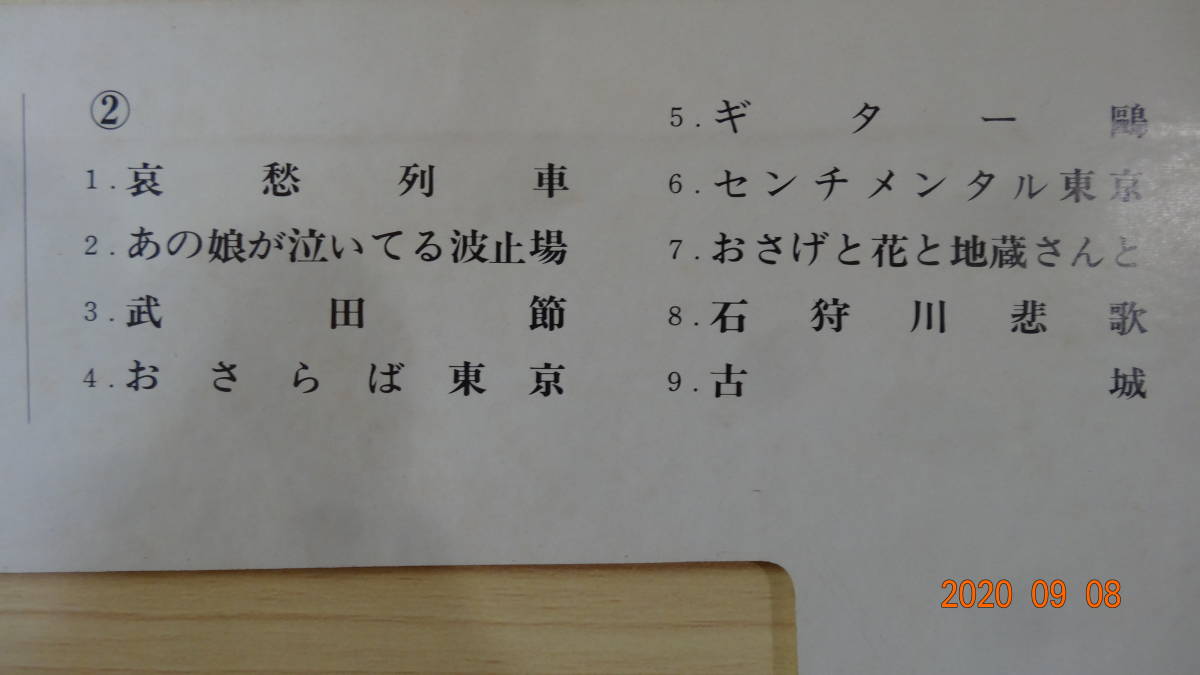 ②
1.哀愁列車
2.あの娘が泣いてる波止場
3.武田節
4.おさらば東京
5.ギター鷗
6.センチメンタル東京
7.おさげと花と地蔵さんと
8.石狩川悲歌
9.古城
2020 09 08